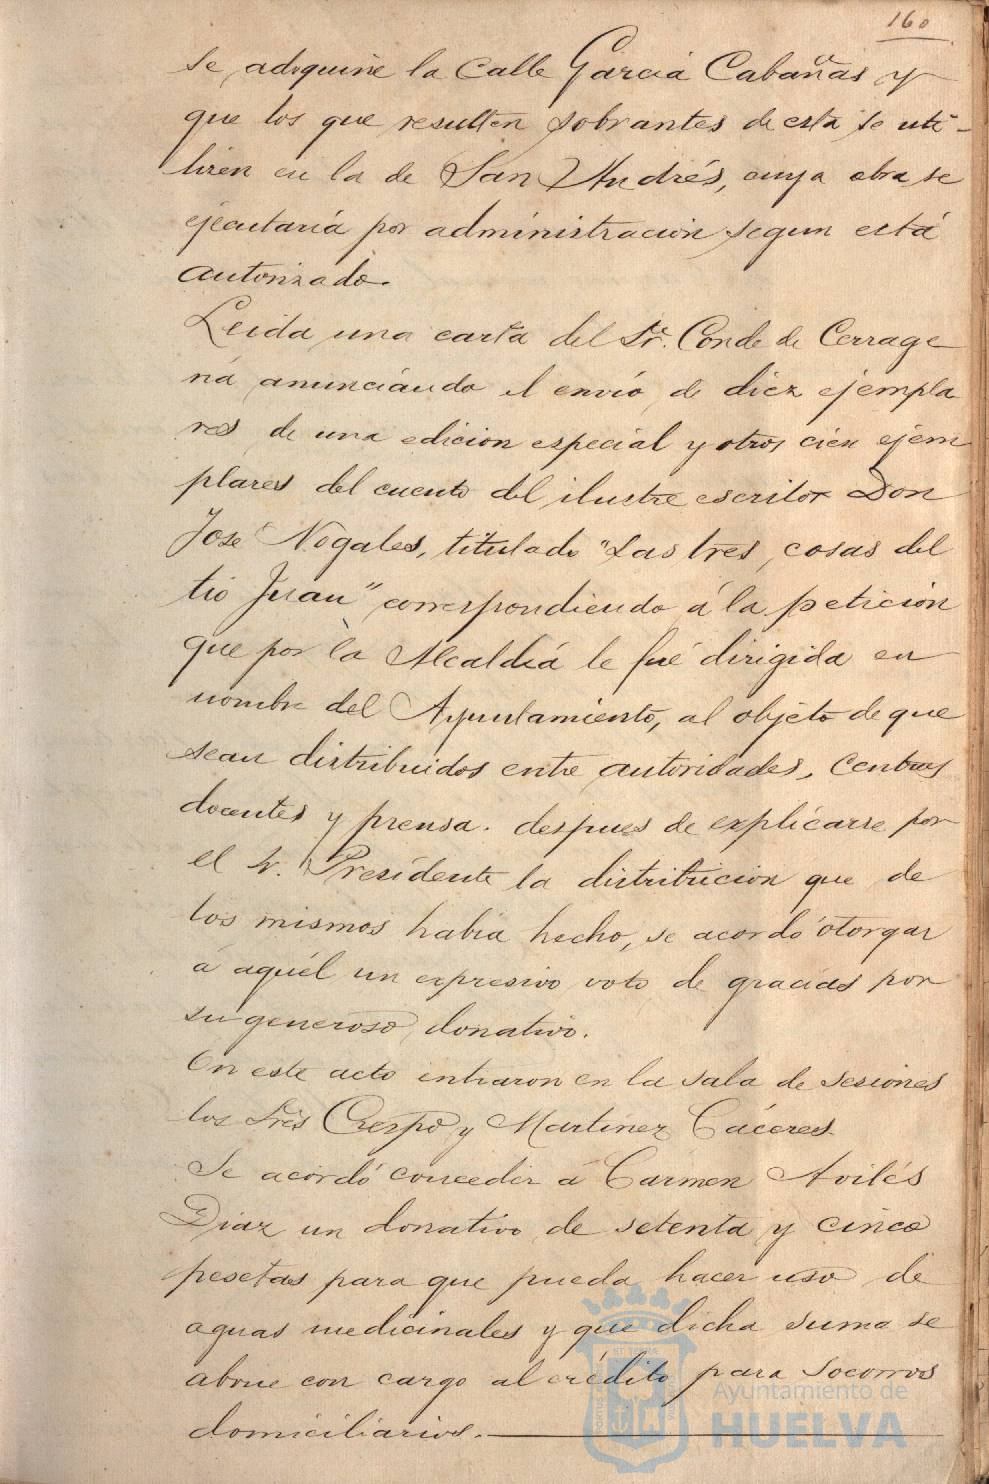 160
se adoquine la Calle Garcia Cabañas y
que los que resulten sobrantes de esta se uti-
licen en la de San Andrés, cuya obra se
ejecutaría por administracion segun está
autorizado.
Leida una carta del Sr. Conde de Cerrage
ria anunciando el envío de diez ejempla
res de una edicion especial y otros cien ejem
plares del cuento del ilustre escritor Don
José Nogales, titulado "Las tres cosas del
tio Juan" correspondiendo á la peticion
que por la Alcaldía le fué dirigida en
nombre del Ayuntamiento, al objeto de que
sean distribuidos entre autoridades, centros
docentes y prensa. despues de explicarse por
el Sr. Presidente la distribucion que de
los mismos habia hecho, se acordó otorgar
á aquél un expresivo voto de gracias por
su generoso donativo.
En este acto entraron en la sala de sesiones
los Sres Crespo y Martinez Cáceres
Se acordó conceder á Carmen Avilés
Diaz un donativo de setenta y cinco
pesetas para que pueda hacer uso de
aguas medicinales y que dicha suma se
abone con cargo al crédito para socorros
domiciliarios.
Ayuntamiento de
HUELVA